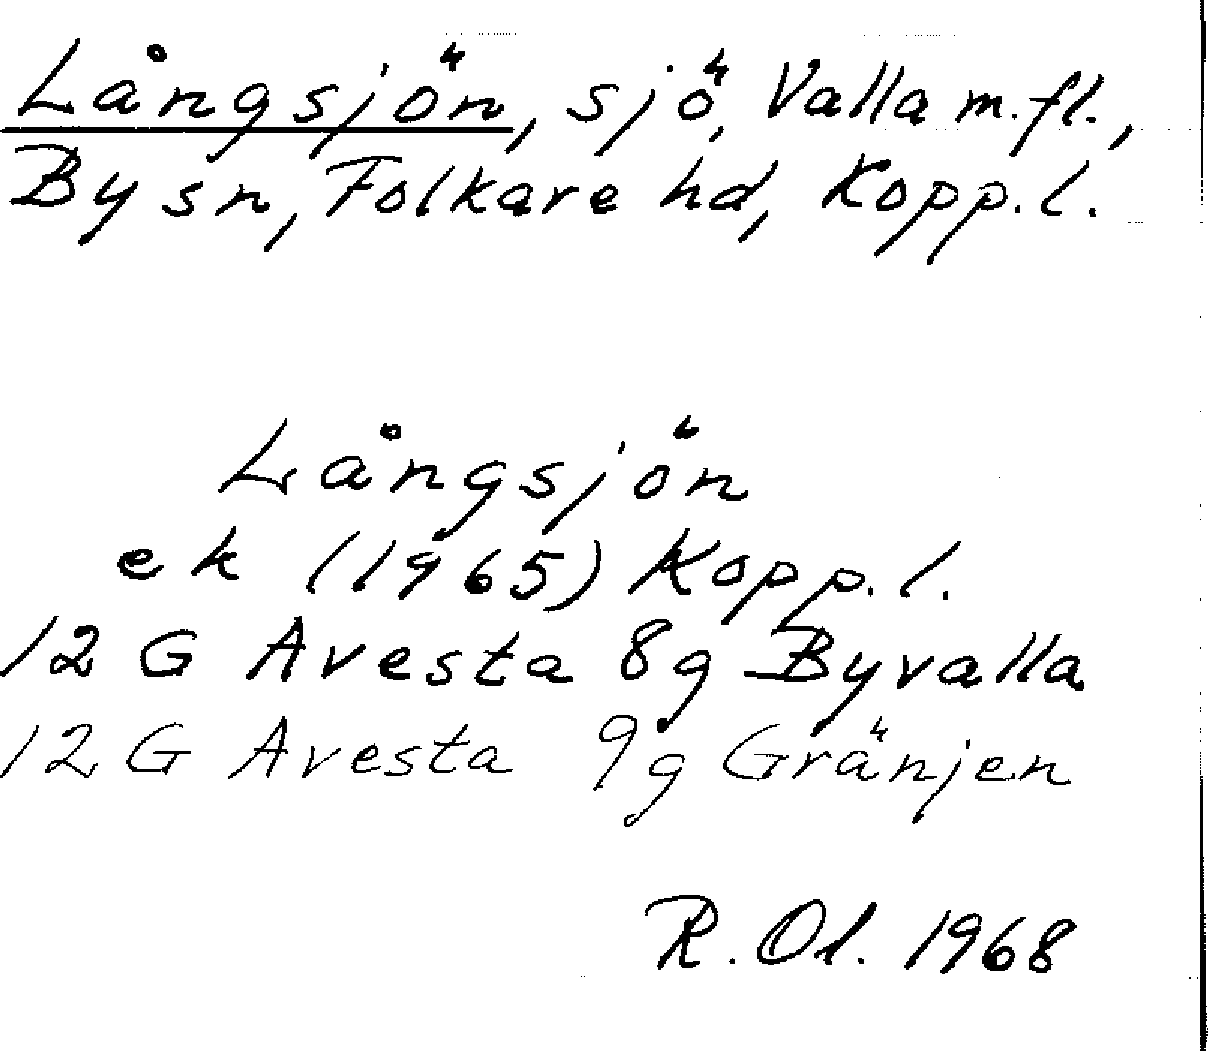 Långsjön, sjö, Valla m.fl.,
By sn, Folkare hd, Kopp.l.
Långsjön
ek (1965) Kopp.l.
12 G Avesta 8g Byvalla
12 G Avesta 9g Gränjen
R. Ol. 1968